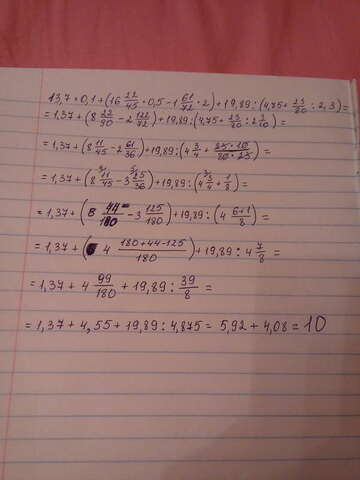 13,7 * 0,1 + (16 22/45 * 0,5 - 1 61/72 * 2) + 19,89 : (4,75 + 23/80 : 2,3) =
= 1,37 + (8 22/90 - 2 122/72) + 19,89 : (4,75 + 23/80 : 2 3/10) =
= 1,37 + (8 11/45 - 2 61/36) + 19,89 : (4 3/4 + 23 * 10/80 * 23) =
= 1,37 + (8 11/45 - 3 25/36) + 19,89 : (4 3/4 + 1/8) =
= 1,37 + (8 44/180 - 3 125/180) + 19,89 : (4 6+1/8) =
= 1,37 + (4 180+44-125/180) + 19,89 : 4 7/8 =
= 1,37 + 4 99/180 + 19,89 : 39/8 =
= 1,37 + 4,55 + 19,89 : 4,875 = 5,92 + 4,08 = 10